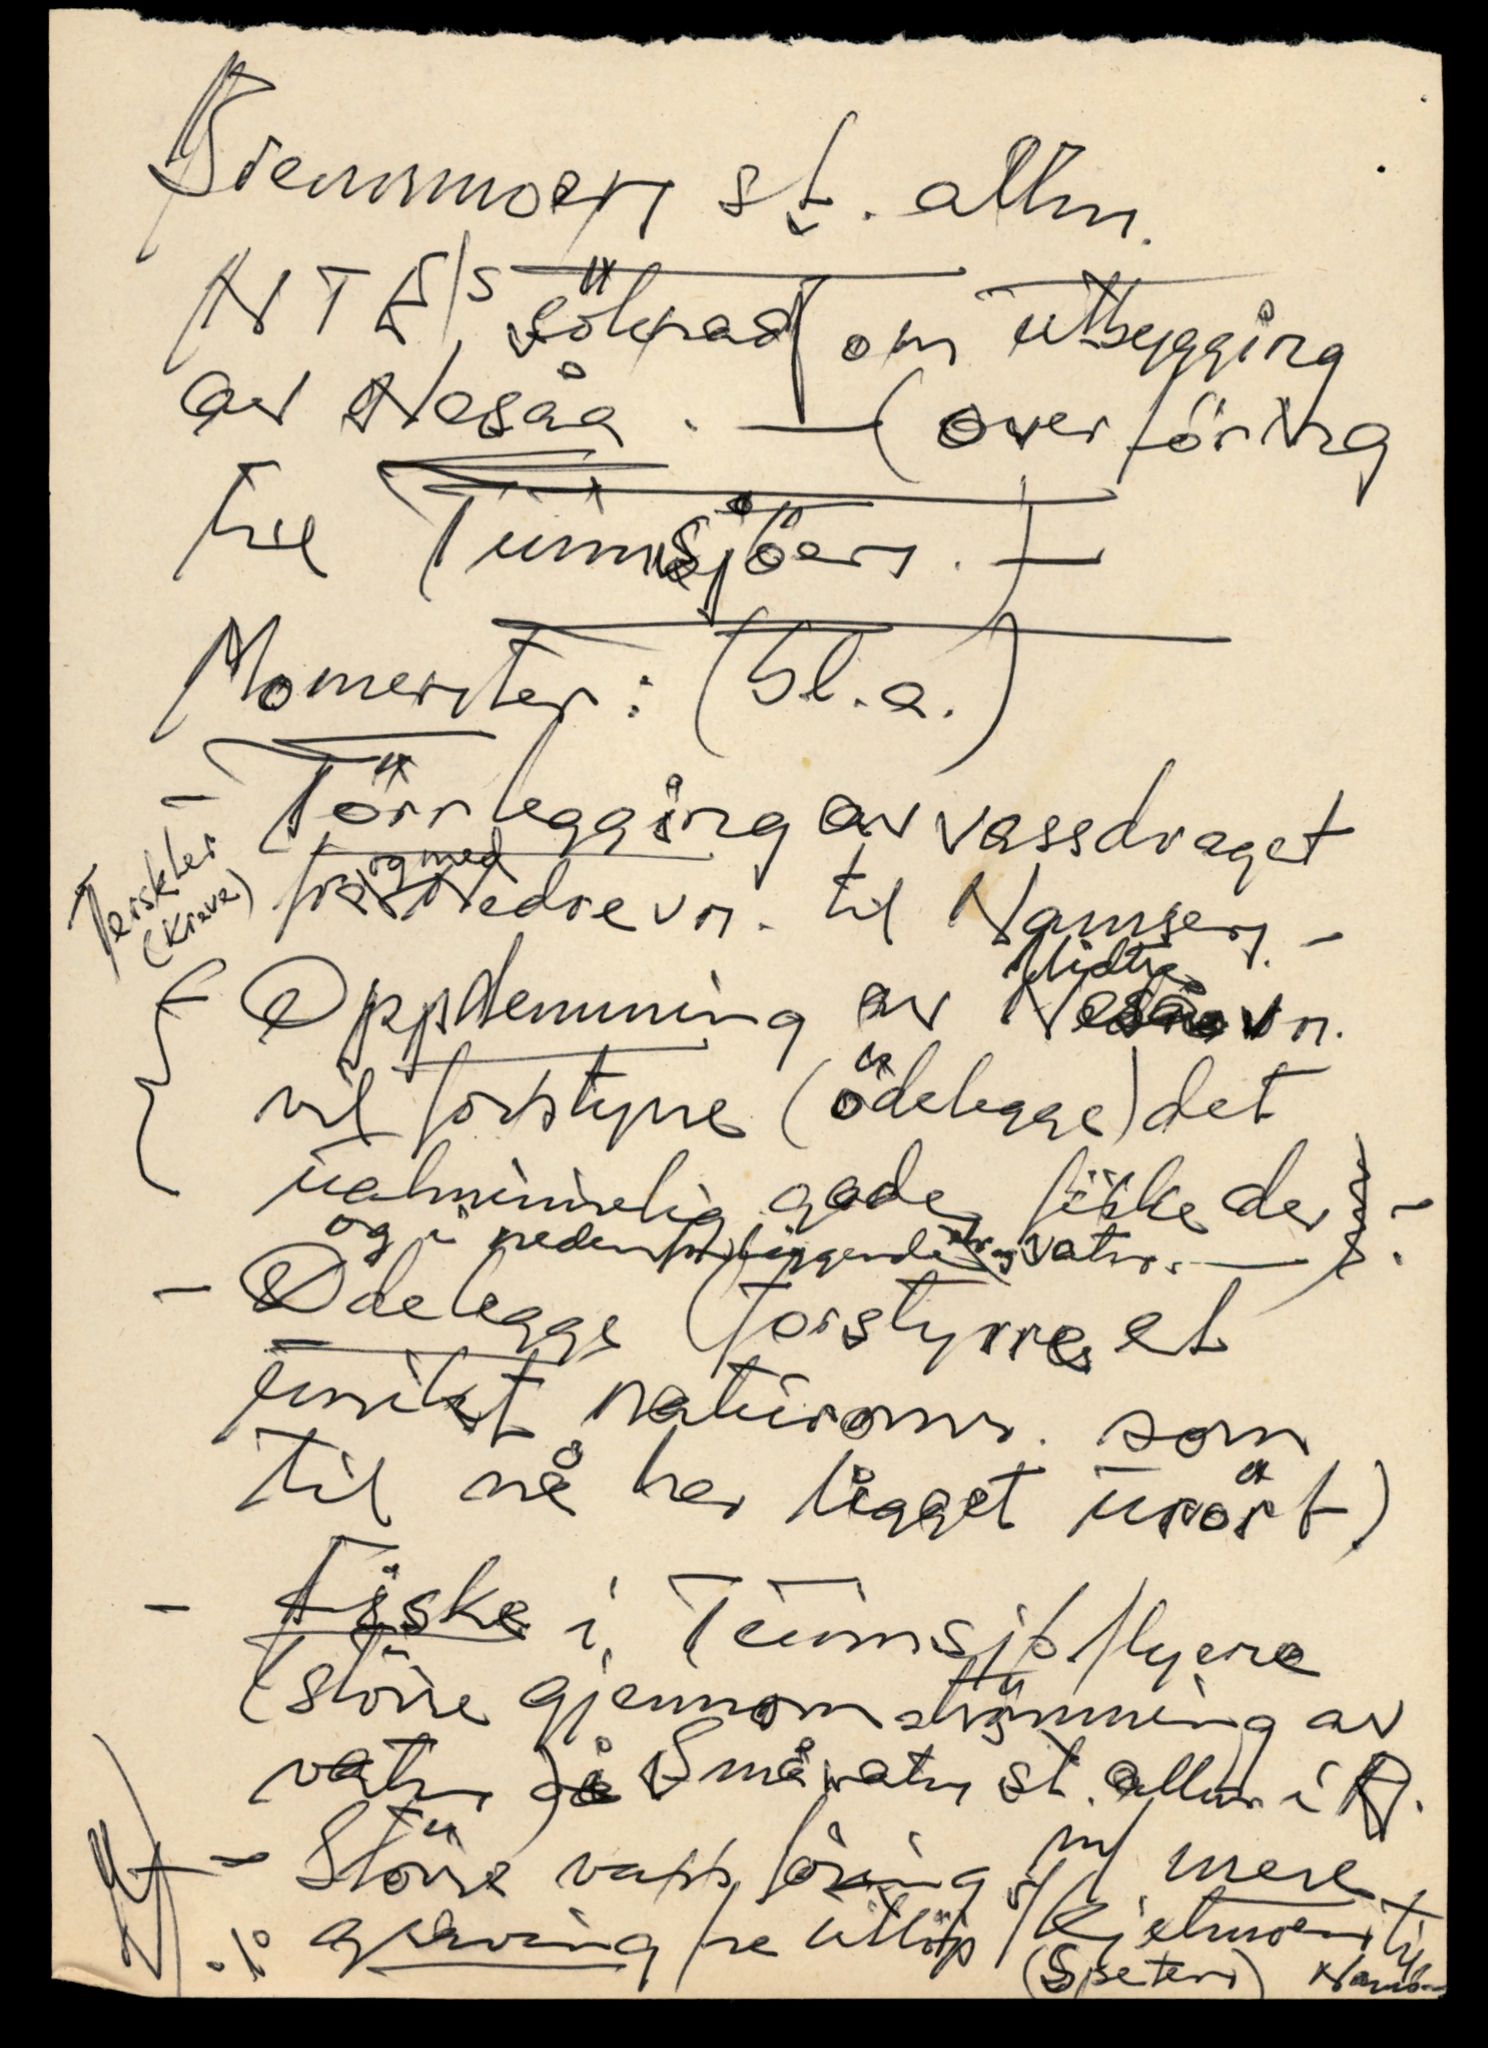 st. allm.
NTE's søknad om utbygging
av Nesåa. — (overføring
til Tunnsjøen.) —
Momenter: (bl.a.)
- Tørrlegging av vassdraget
Terskler
(Kreve)
fra og med Nedrevn. til Namsen. -
Oppdemming av Midtre Nesåvn.
vil forstyrre (ødelegge) det
ualminnelig gode fiske der
og i nedenforliggende vatn. —
- Ødelegge (forstyrre et
unikt naturomr. som
til nå har ligget urørt)
- Fiske i Tunnsjøflyene
(større gjennomstrømning av
vatn) i Småvatn st. allm. i R.
- Større vassføring m/ mere
graving fra utløp Tunnsj
(Speteri)